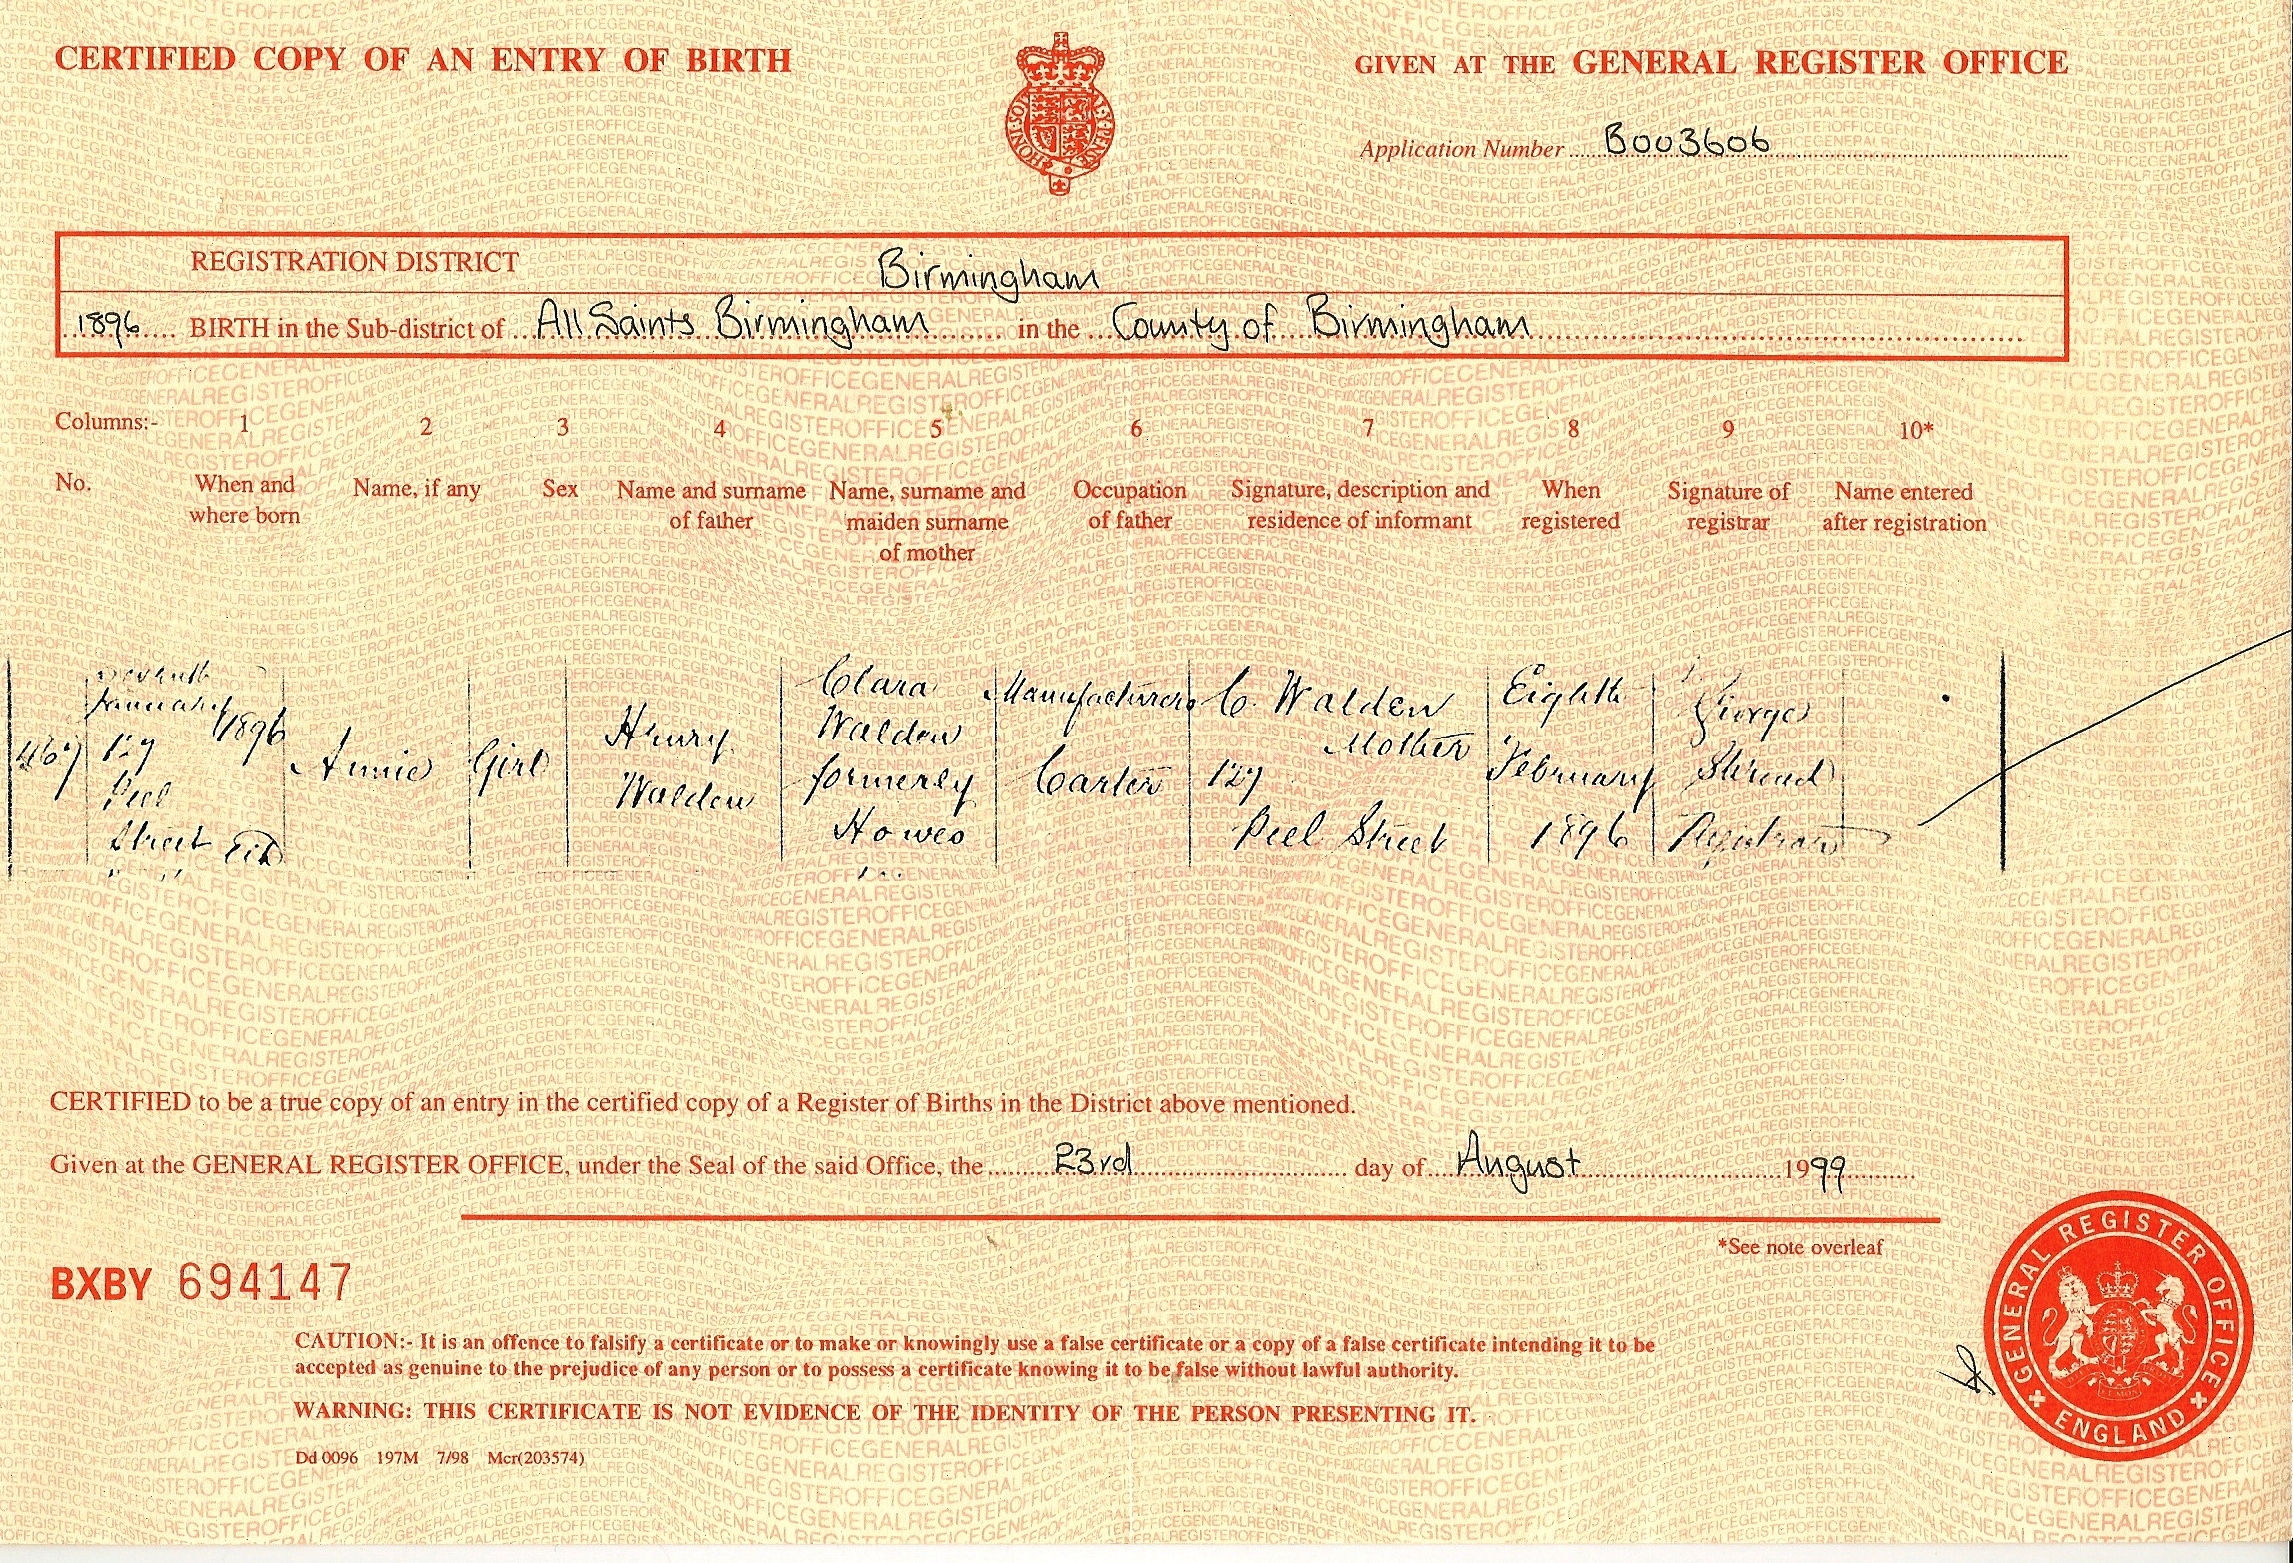 CERTIFIED COPY OF AN ENTRY OF BIRTH
GIVEN AT THE GENERAL REGISTER OFFICE
HONI SOIT
Application Number B003606
REGISTRATION DISTRICT Birmingham
1896 BIRTH in the Sub-district of All Saints Birmingham in the County of Birmingham
Columns:- 1 2 3 4 5 6 7 8 9 10*
No.
When and
where born
Name, if any
Sex
Name and surname
of father
Name, surname and
maiden surname
of mother
Occupation
of father
Signature, description and
residence of informant
When
registered
Signature of
registrar
Name entered
after registration
467
Seventh
January
1896
127
Peel
Street
Annie
Girl
Henry
Walden
Clara
Walden
formerly
Howes
Manufacturers
Carter
C. Walden
Mother
127
Peel Street
Eighth
February
1896
George
Registrar
CERTIFIED to be a true copy of an entry in the certified copy of a Register of Births in the District above mentioned.
Given at the GENERAL REGISTER OFFICE, under the Seal of the said Office, the 23rd day of August 1999
*See note overleaf
BXBY 694147
CAUTION:- It is an offence to falsify a certificate or to make or knowingly use a false certificate or a copy of a false certificate intending it to be
accepted as genuine to the prejudice of any person or to possess a certificate knowing it to be false without lawful authority.
WARNING: THIS CERTIFICATE IS NOT EVIDENCE OF THE IDENTITY OF THE PERSON PRESENTING IT.
Dd 0096 197M 7/98 Mcr(203574)
GENERAL REGISTER OFFICE
ENGLAND